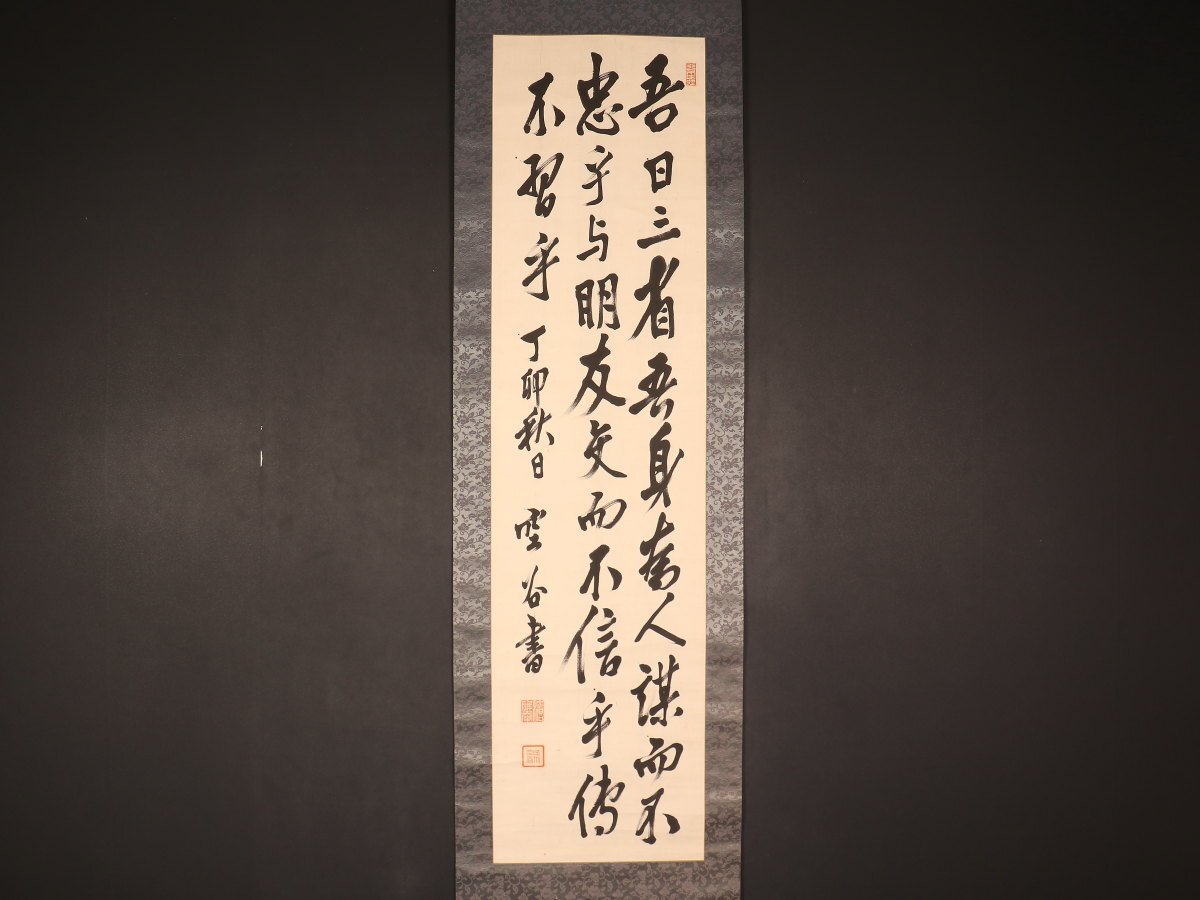 吾日三省吾身為人謀而不
忠乎与朋友交而不信乎傳
不習乎 丁卯秋日 空谷書